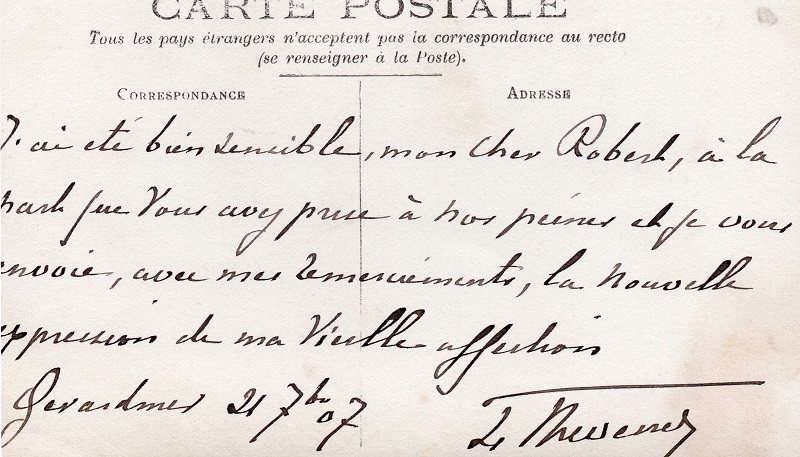 CARTE POSTALE
Tous les pays étrangers n'acceptent pas la correspondance au recto
(se renseigner à la Poste).
CORRESPONDANCE ADRESSE
J'ai été bien sensible, mon cher Robert, à la
part que vous avez prise à nos peines et je vous
envoie, avec mes remerciements, la nouvelle
expression de ma vieille affection
Gerardmer 21 7bre 07